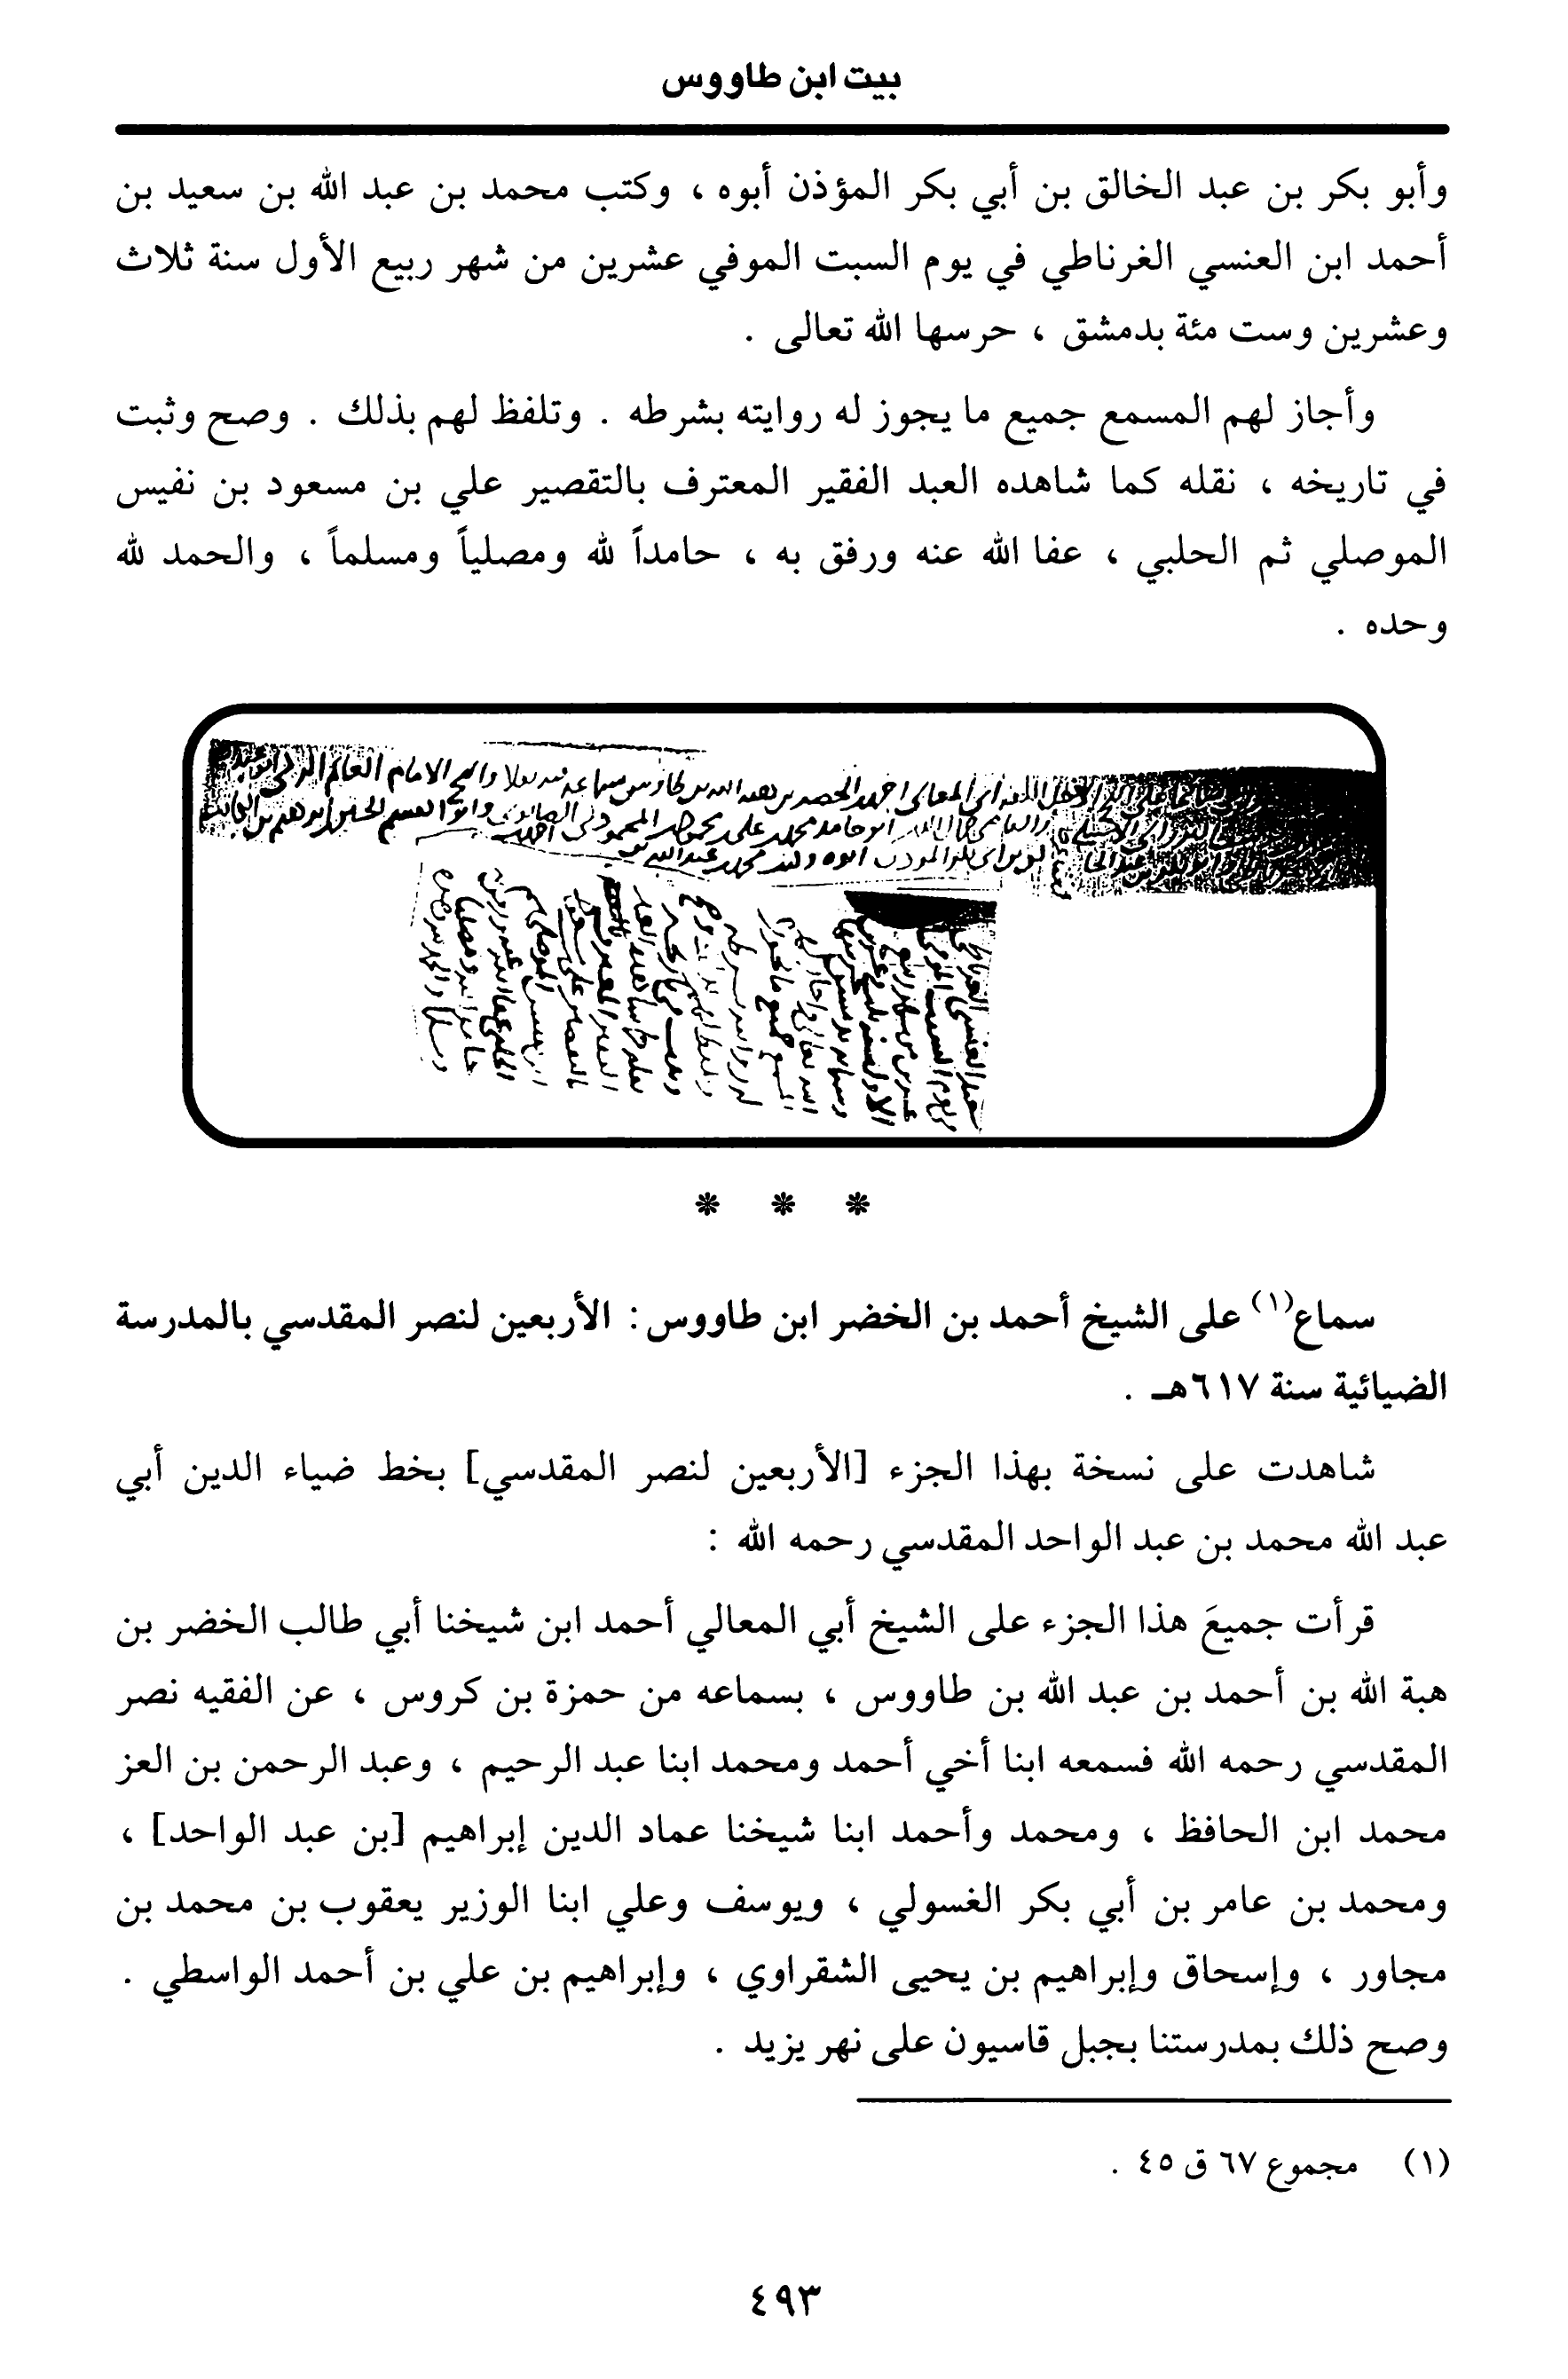 بيت ابن طاووس
وأبو بكر بن عبد الخالق بن أبي بكر المؤذن أبوه ، وكتب محمد بن عبد الله بن سعيد بن
أحمد ابن العنسي الغرناطي في يوم السبت الموفي عشرين من شهر ربيع الأول سنة ثلاث
وعشرين وست مئة بدمشق ، حرسها الله تعالى .
وأجاز لهم المسمع جميع ما يجوز له روايته بشرطه . وتلفظ لهم بذلك . وصح وثبت
في تاريخه ، نقله كما شاهده العبد الفقير المعترف بالتقصير علي بن مسعود بن نفيس
الموصلي ثم الحلبي ، عفا الله عنه ورفق به ، حامداً لله ومصلياً ومسلماً ، والحمد لله
وحده .
* * *
سماع(١) على الشيخ أحمد بن الخضر ابن طاووس : الأربعين لنصر المقدسي بالمدرسة
الضيائية سنة ٦١٧هـ .
شاهدت على نسخة بهذا الجزء [الأربعين لنصر المقدسي] بخط ضياء الدين أبي
عبد الله محمد بن عبد الواحد المقدسي رحمه الله :
قرأت جميعَ هذا الجزء على الشيخ أبي المعالي أحمد ابن شيخنا أبي طالب الخضر بن
هبة الله بن أحمد بن عبد الله بن طاووس ، بسماعه من حمزة بن كروس ، عن الفقيه نصر
المقدسي رحمه الله فسمعه ابنا أخي أحمد ومحمد ابنا عبد الرحيم ، وعبد الرحمن بن العز
محمد ابن الحافظ ، ومحمد وأحمد ابنا شيخنا عماد الدين إبراهيم [بن عبد الواحد] ،
ومحمد بن عامر بن أبي بكر الغسولي ، ويوسف وعلي ابنا الوزير يعقوب بن محمد بن
مجاور ، وإسحاق وإبراهيم بن يحيى الشقراوي ، وإبراهيم بن علي بن أحمد الواسطي .
وصح ذلك بمدرستنا بجبل قاسيون على نهر يزيد .
(١) مجموع ٦٧ ق ٤٥ .
٤٩٣